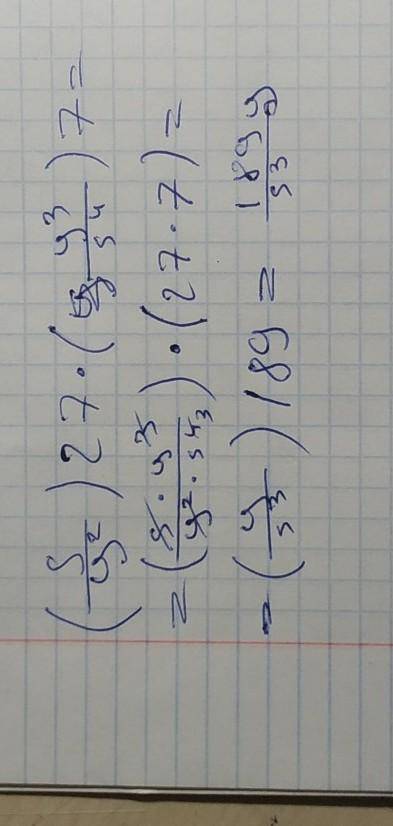 (s/y²)27·(y³/s⁴)7=
=(s·y³/y²·s⁴3)·(27·7)=
=(y/s³)189=189y/s³